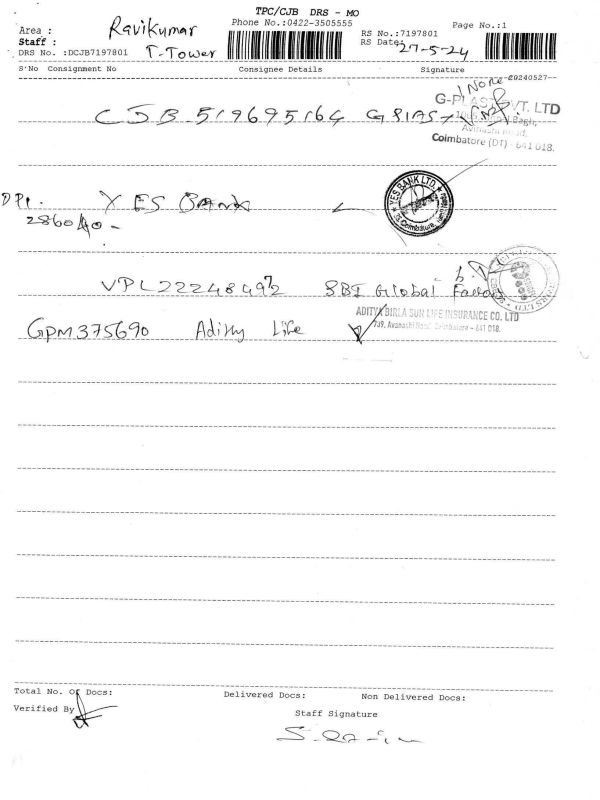 TPC/CJB DRS - MO
Area : Ravikumar Phone No.:0422-3505555 Page No.:1
Staff : RS No.:7197801
DRS No. :DCJB7197801 T-Tower RS Date: 27-5-24
S'No Consignment No Consignee Details Signature
20240527
CJB 519695164 G PLAST
G-PLAST PVT. LTD
Avinashi Road,
Coimbatore (DT) - 641 018.
DPI. YES Bank
YES BANK LTD.
Coimbatore
VPL222484972 SBI Global Factors
ADITYA BIRLA SUN LIFE INSURANCE CO. LTD
739, Avanashi Road, Coimbatore - 641 018.
GPM375690 Aditly Life
Total No. Of Docs: Delivered Docs: Non Delivered Docs:
Verified By
Staff Signature